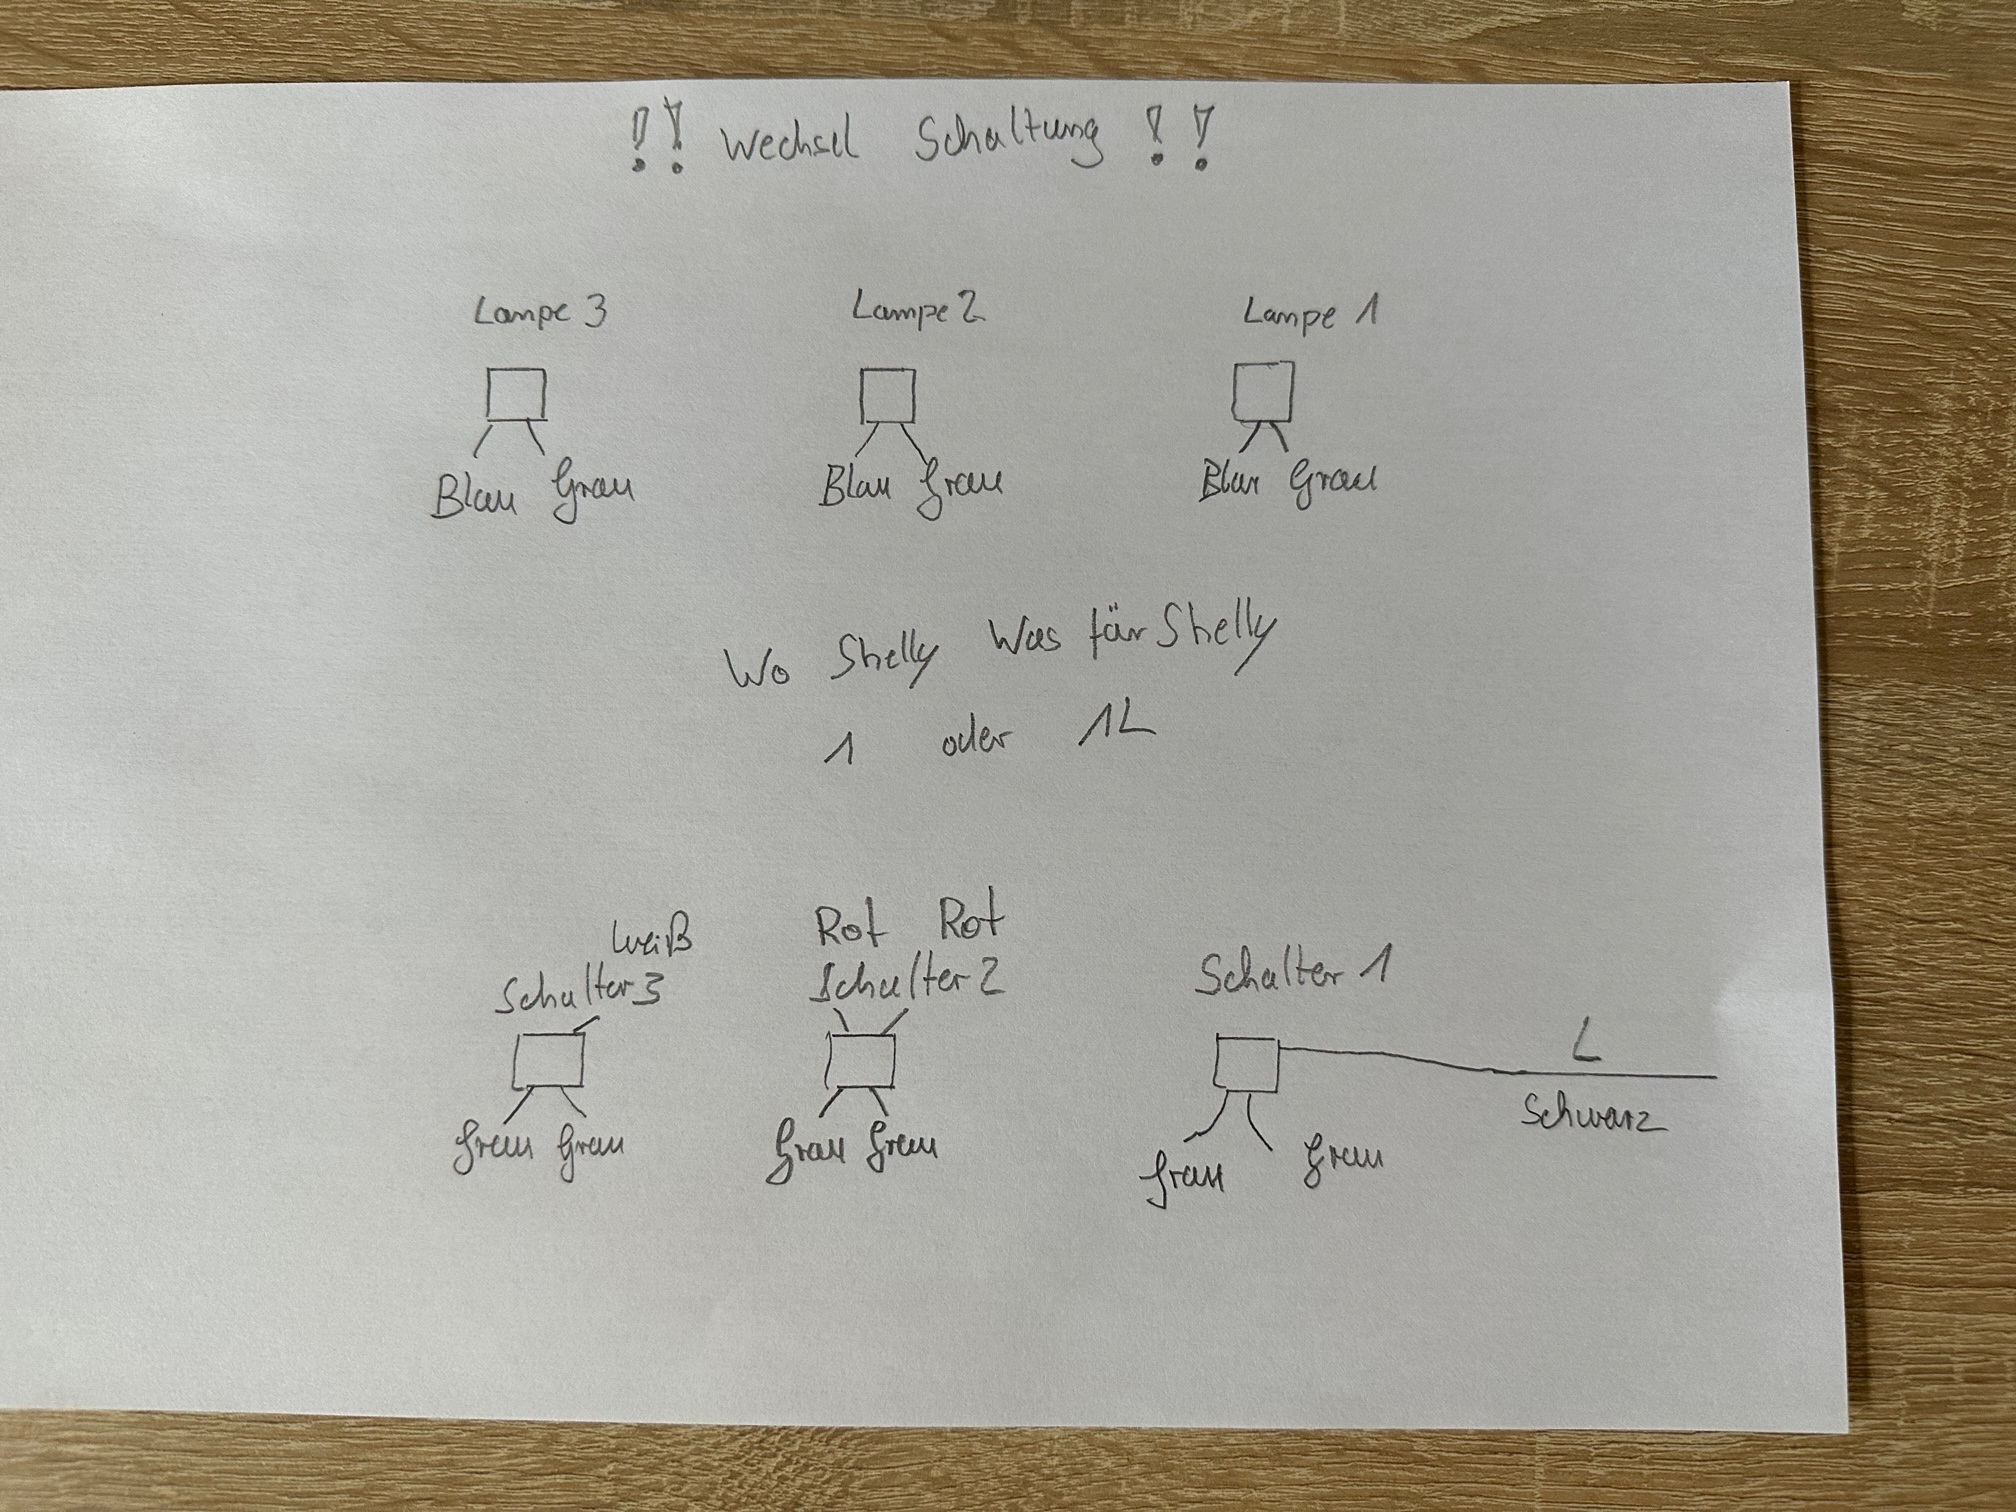 !! Wechsel Schaltung !!
Lampe 3 Lampe 2 Lampe 1
Blau Grau Blau Grau Blau Grau
Wo Shelly Was für Shelly
1 oder 1L
Weiß Rot Rot
Schalter 3 Schalter 2 Schalter 1
L
Schwarz
Grau Grau Grau Grau Grau Grau